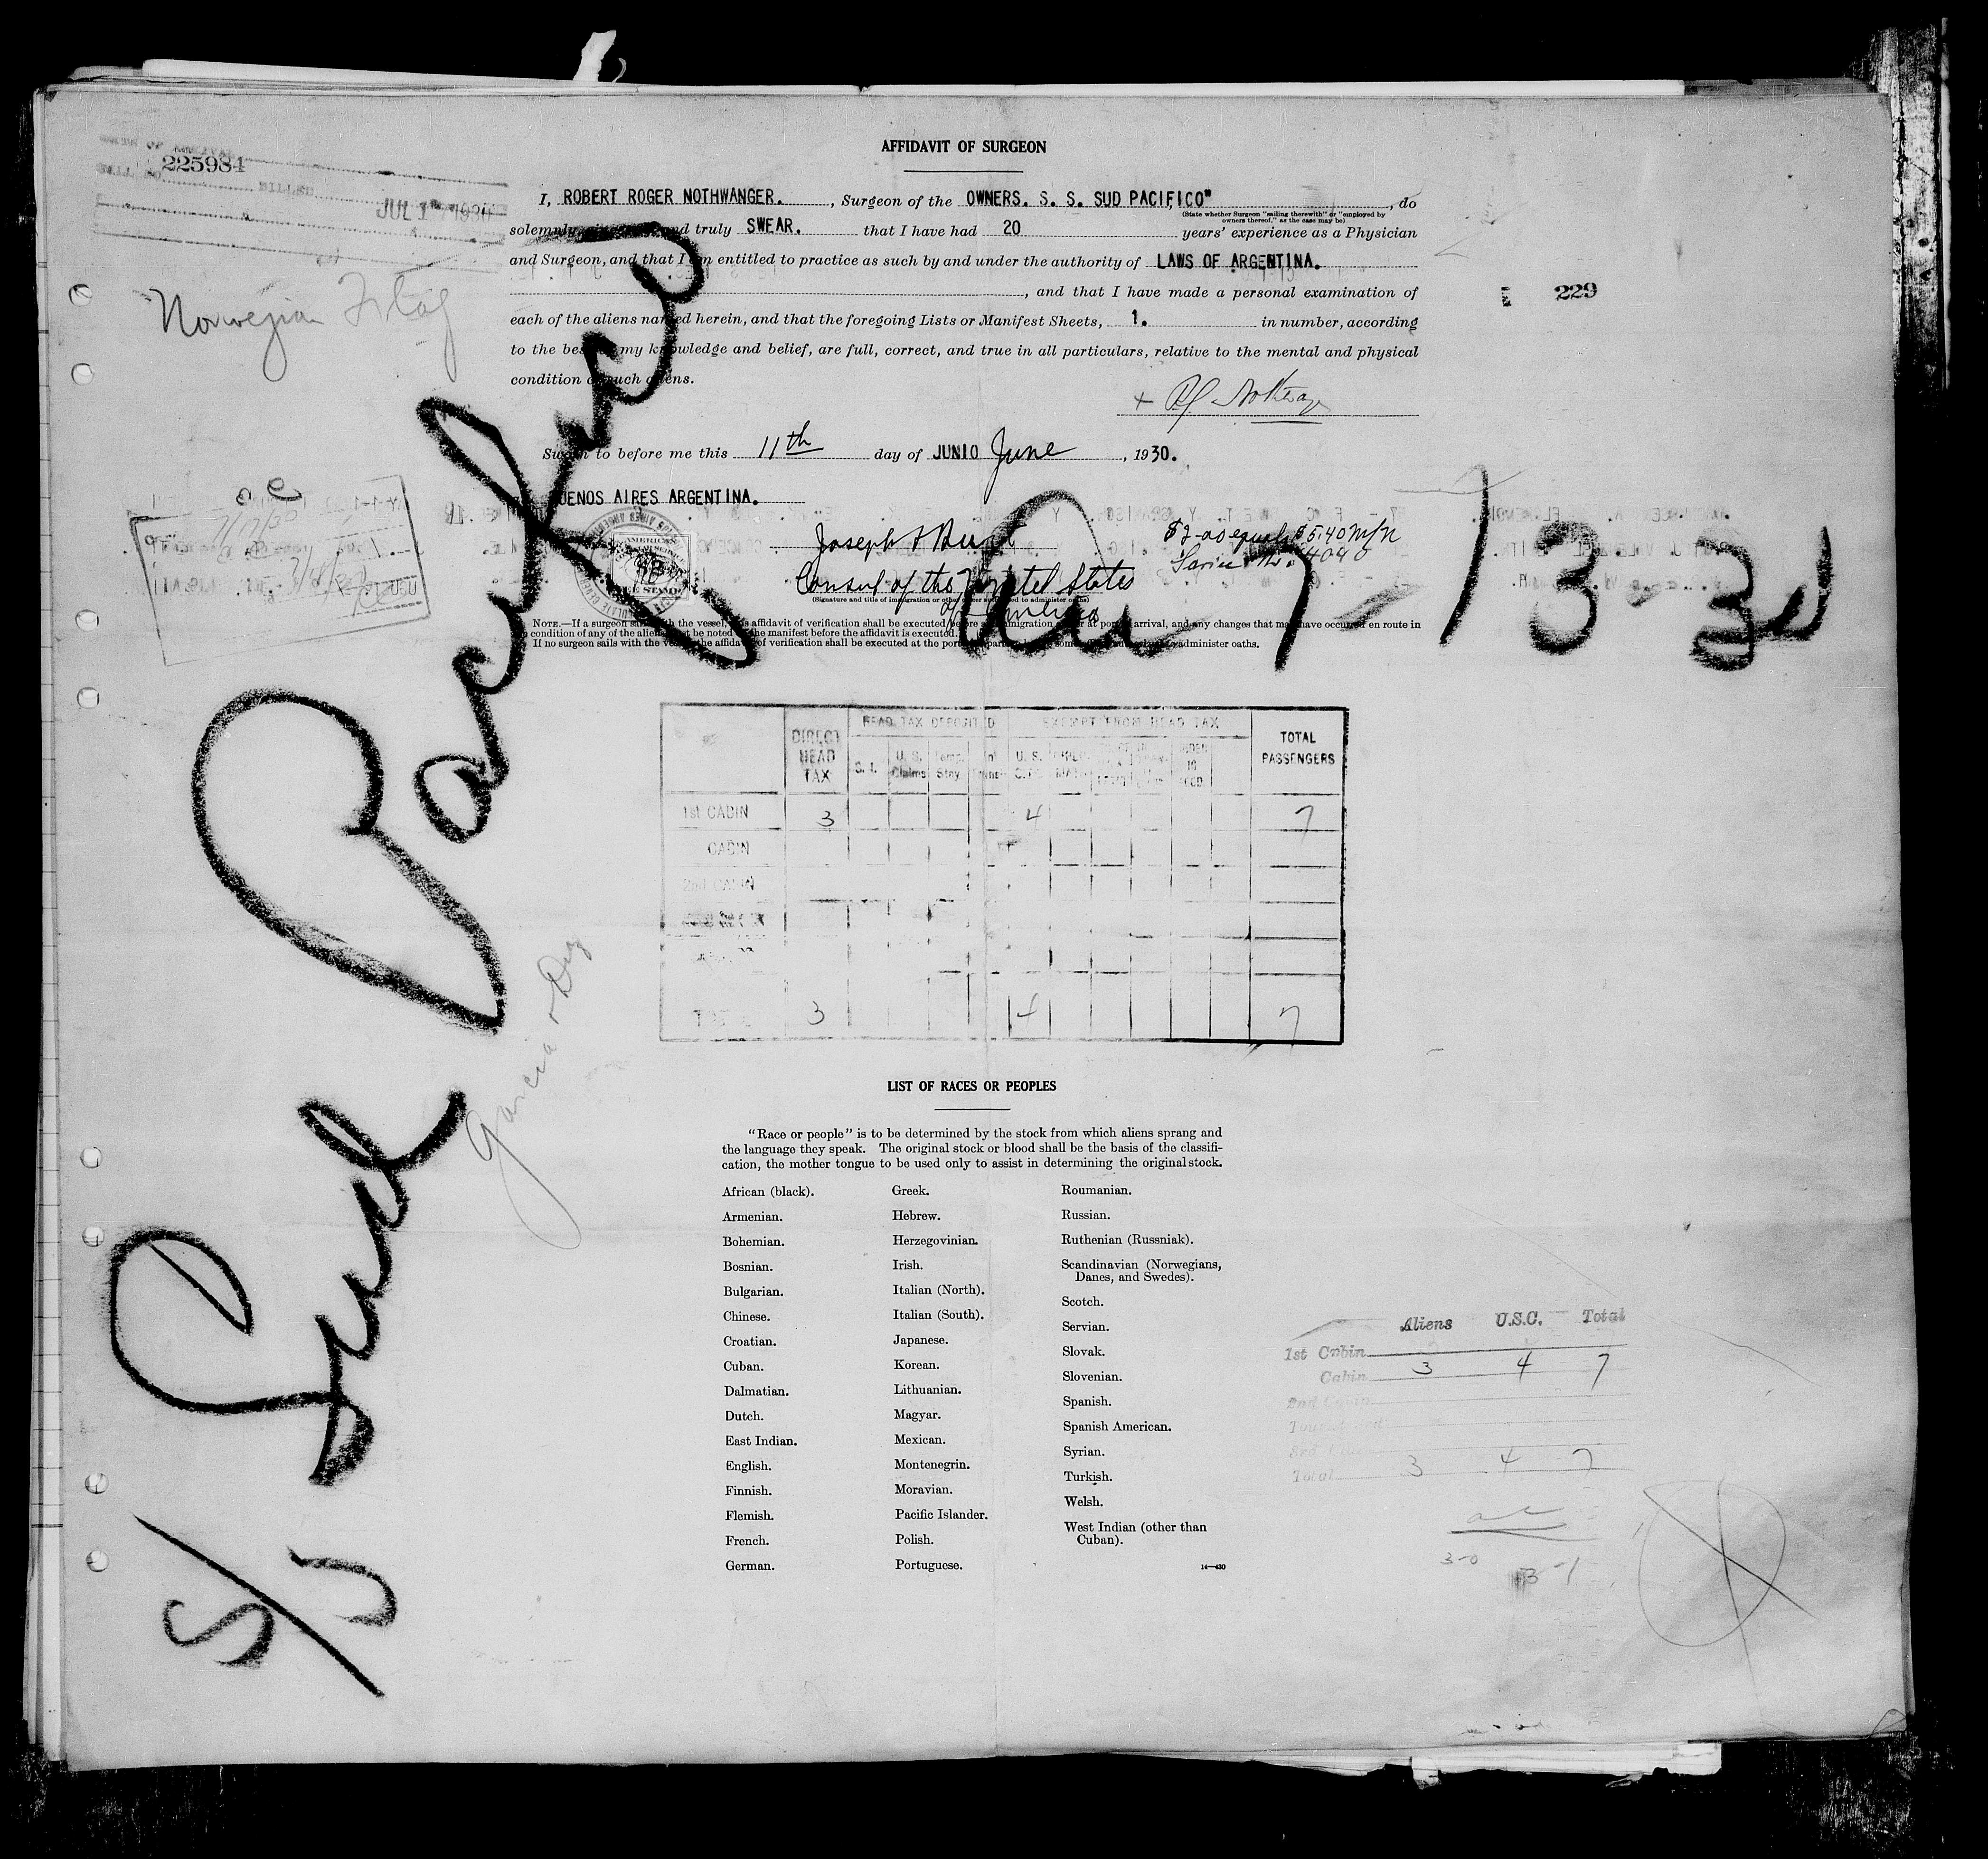 AFFIDAVIT OF SURGEON
225984
JUL 1 1930
Norwegian Flag
I, ROBERT ROGER NOTHWANGER. , Surgeon of the OWNERS. S. S. SUD PACIFICO" , do
(State whether Surgeon "sailing therewith" or "employed by
owners thereof," as the case may be)
solemnly, and truly SWEAR. that I have had 20 years' experience as a Physician
and Surgeon, and that I am entitled to practice as such by and under the authority of LAWS OF ARGENTINA.
, and that I have made a personal examination of
229
each of the aliens named herein, and that the foregoing Lists or Manifest Sheets, 1. in number, according
to the best of my knowledge and belief, are full, correct, and true in all particulars, relative to the mental and physical
condition of such aliens.
Sworn to before me this 11th day of JUNIO June , 1930.
BUENOS AIRES ARGENTINA.
Consul of the United States
of America
(Signature and title of immigration or other officer authorized to administer oaths)
$2.00 equals $5.40 m/n
4040
7-13-30
NOTE.—If a surgeon sails with the vessel, this affidavit of verification shall be executed before an immigration officer at port of arrival, and any changes that may have occurred en route in
condition of any of the aliens must be noted on the manifest before the affidavit is executed.
If no surgeon sails with the vessel, the affidavit of verification shall be executed at the port of departure before some officer authorized to administer oaths.
S/S Sud Pacifico
HEAD TAX DEPOSITED EXEMPT FROM HEAD TAX
DIRECT HEAD TAX S. I. U. S. Claims Temp. Stay U. S. TOTAL PASSENGERS
1st CABIN 3 4 7
CABIN
2nd CABIN
3 4 7
Garcia & Diaz
LIST OF RACES OR PEOPLES
"Race or people" is to be determined by the stock from which aliens sprang and
the language they speak. The original stock or blood shall be the basis of the classifi-
cation, the mother tongue to be used only to assist in determining the original stock.
African (black).
Armenian.
Bohemian.
Bosnian.
Bulgarian.
Chinese.
Croatian.
Cuban.
Dalmatian.
Dutch.
East Indian.
English.
Finnish.
Flemish.
French.
German.
Greek.
Hebrew.
Herzegovinian.
Irish.
Italian (North).
Italian (South).
Japanese.
Korean.
Lithuanian.
Magyar.
Mexican.
Montenegrin.
Moravian.
Pacific Islander.
Polish.
Portuguese.
Roumanian.
Russian.
Ruthenian (Russniak).
Scandinavian (Norwegians,
Danes, and Swedes).
Scotch.
Servian.
Slovak.
Slovenian.
Spanish.
Spanish American.
Syrian.
Turkish.
Welsh.
West Indian (other than
Cuban).
14—430
Aliens U.S.C. Total
1st Cabin
Cabin 3 4 7
2nd Cabin
Total 3 4 7
3-0
3-1